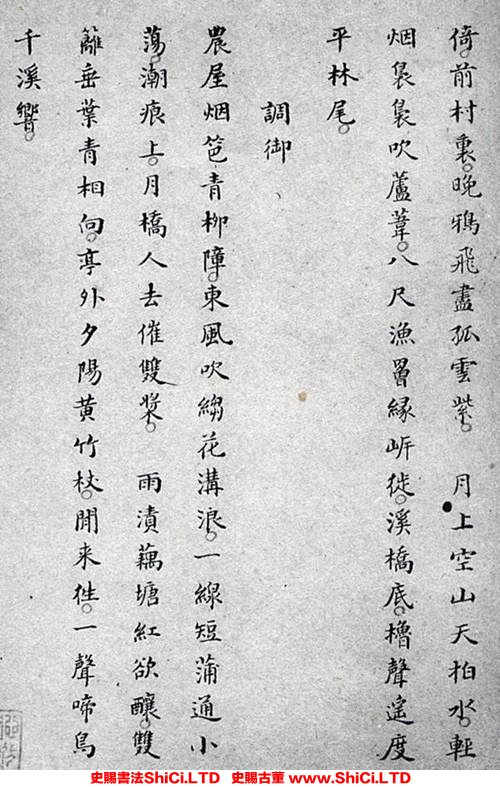 倚前村裏。晚鴉飛盡孤雲紫。　月上空山天拍水。輕
烟裊裊吹蘆葦。八尺漁罾緣岍徙。溪橋底。櫓聲遙度
平林尾。
調御
農屋烟笆青柳障。東風吹縐花溝浪。一線短蒲通小
蕩。潮痕上。月橋人去催雙槳。　雨漬藕塘紅欲釀。雙
籬垂葉青相向。亭外夕陽黄竹杖。閒来徃。一聲啼鳥
千溪響。
史賜書法ShiCi.LTD 史賜古董 www.ShiCi.LTD